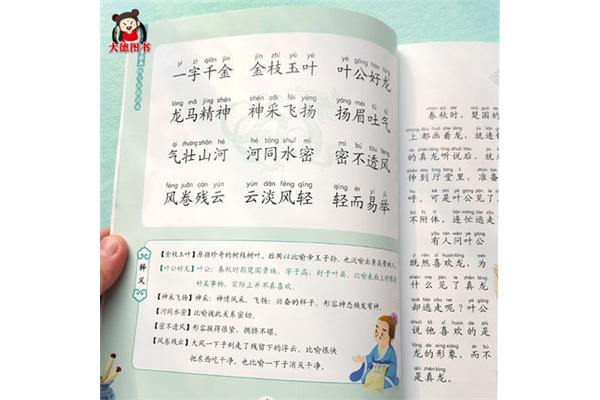 大德图书
yí zì qiān jīn jīn zhī yù yè yè gōng hào lóng
一字千金 金枝玉叶 叶公好龙
lóng mǎ jīng shén shén cǎi fēi yáng yáng méi tǔ qì
龙马精神 神采飞扬 扬眉吐气
qì zhuàng shān hé hé tóng shuǐ mì mì bù tòu fēng
气壮山河 河同水密 密不透风
fēng juǎn cán yún yún dàn fēng qīng qīng ér yì jǔ
风卷残云 云淡风轻 轻而易举
释义
【金枝玉叶】原指珍奇的树枝树叶，后用以比喻帝王子孙，也泛喻出身高贵的人。
【叶公好龙】叶公：春秋时期楚国贵族，字子高，封于叶县。比喻表面上
好某事物，实际上并不真喜欢。
【神采飞扬】神采：神情风采。飞扬：兴奋的样子。形容神态焕发有神。
【河同水密】比喻彼此关系密切。
【密不透风】形容挨得很紧，拥挤不堪。
【风卷残云】大风一下子刮走了残留下的浮云。比喻很快
把东西吃干净，也比喻一下子消灭干净。
春秋时，楚国的
上都画着龙，就连
的真龙听说后，就
伸到厅堂里，准备
呼，可是叶公见了
不附体，连忙逃走
有人问叶公
既然喜欢龙，为
什么见了真龙
却逃走呢？叶公
说他喜欢的是
龙的形象，而不
是真龙。